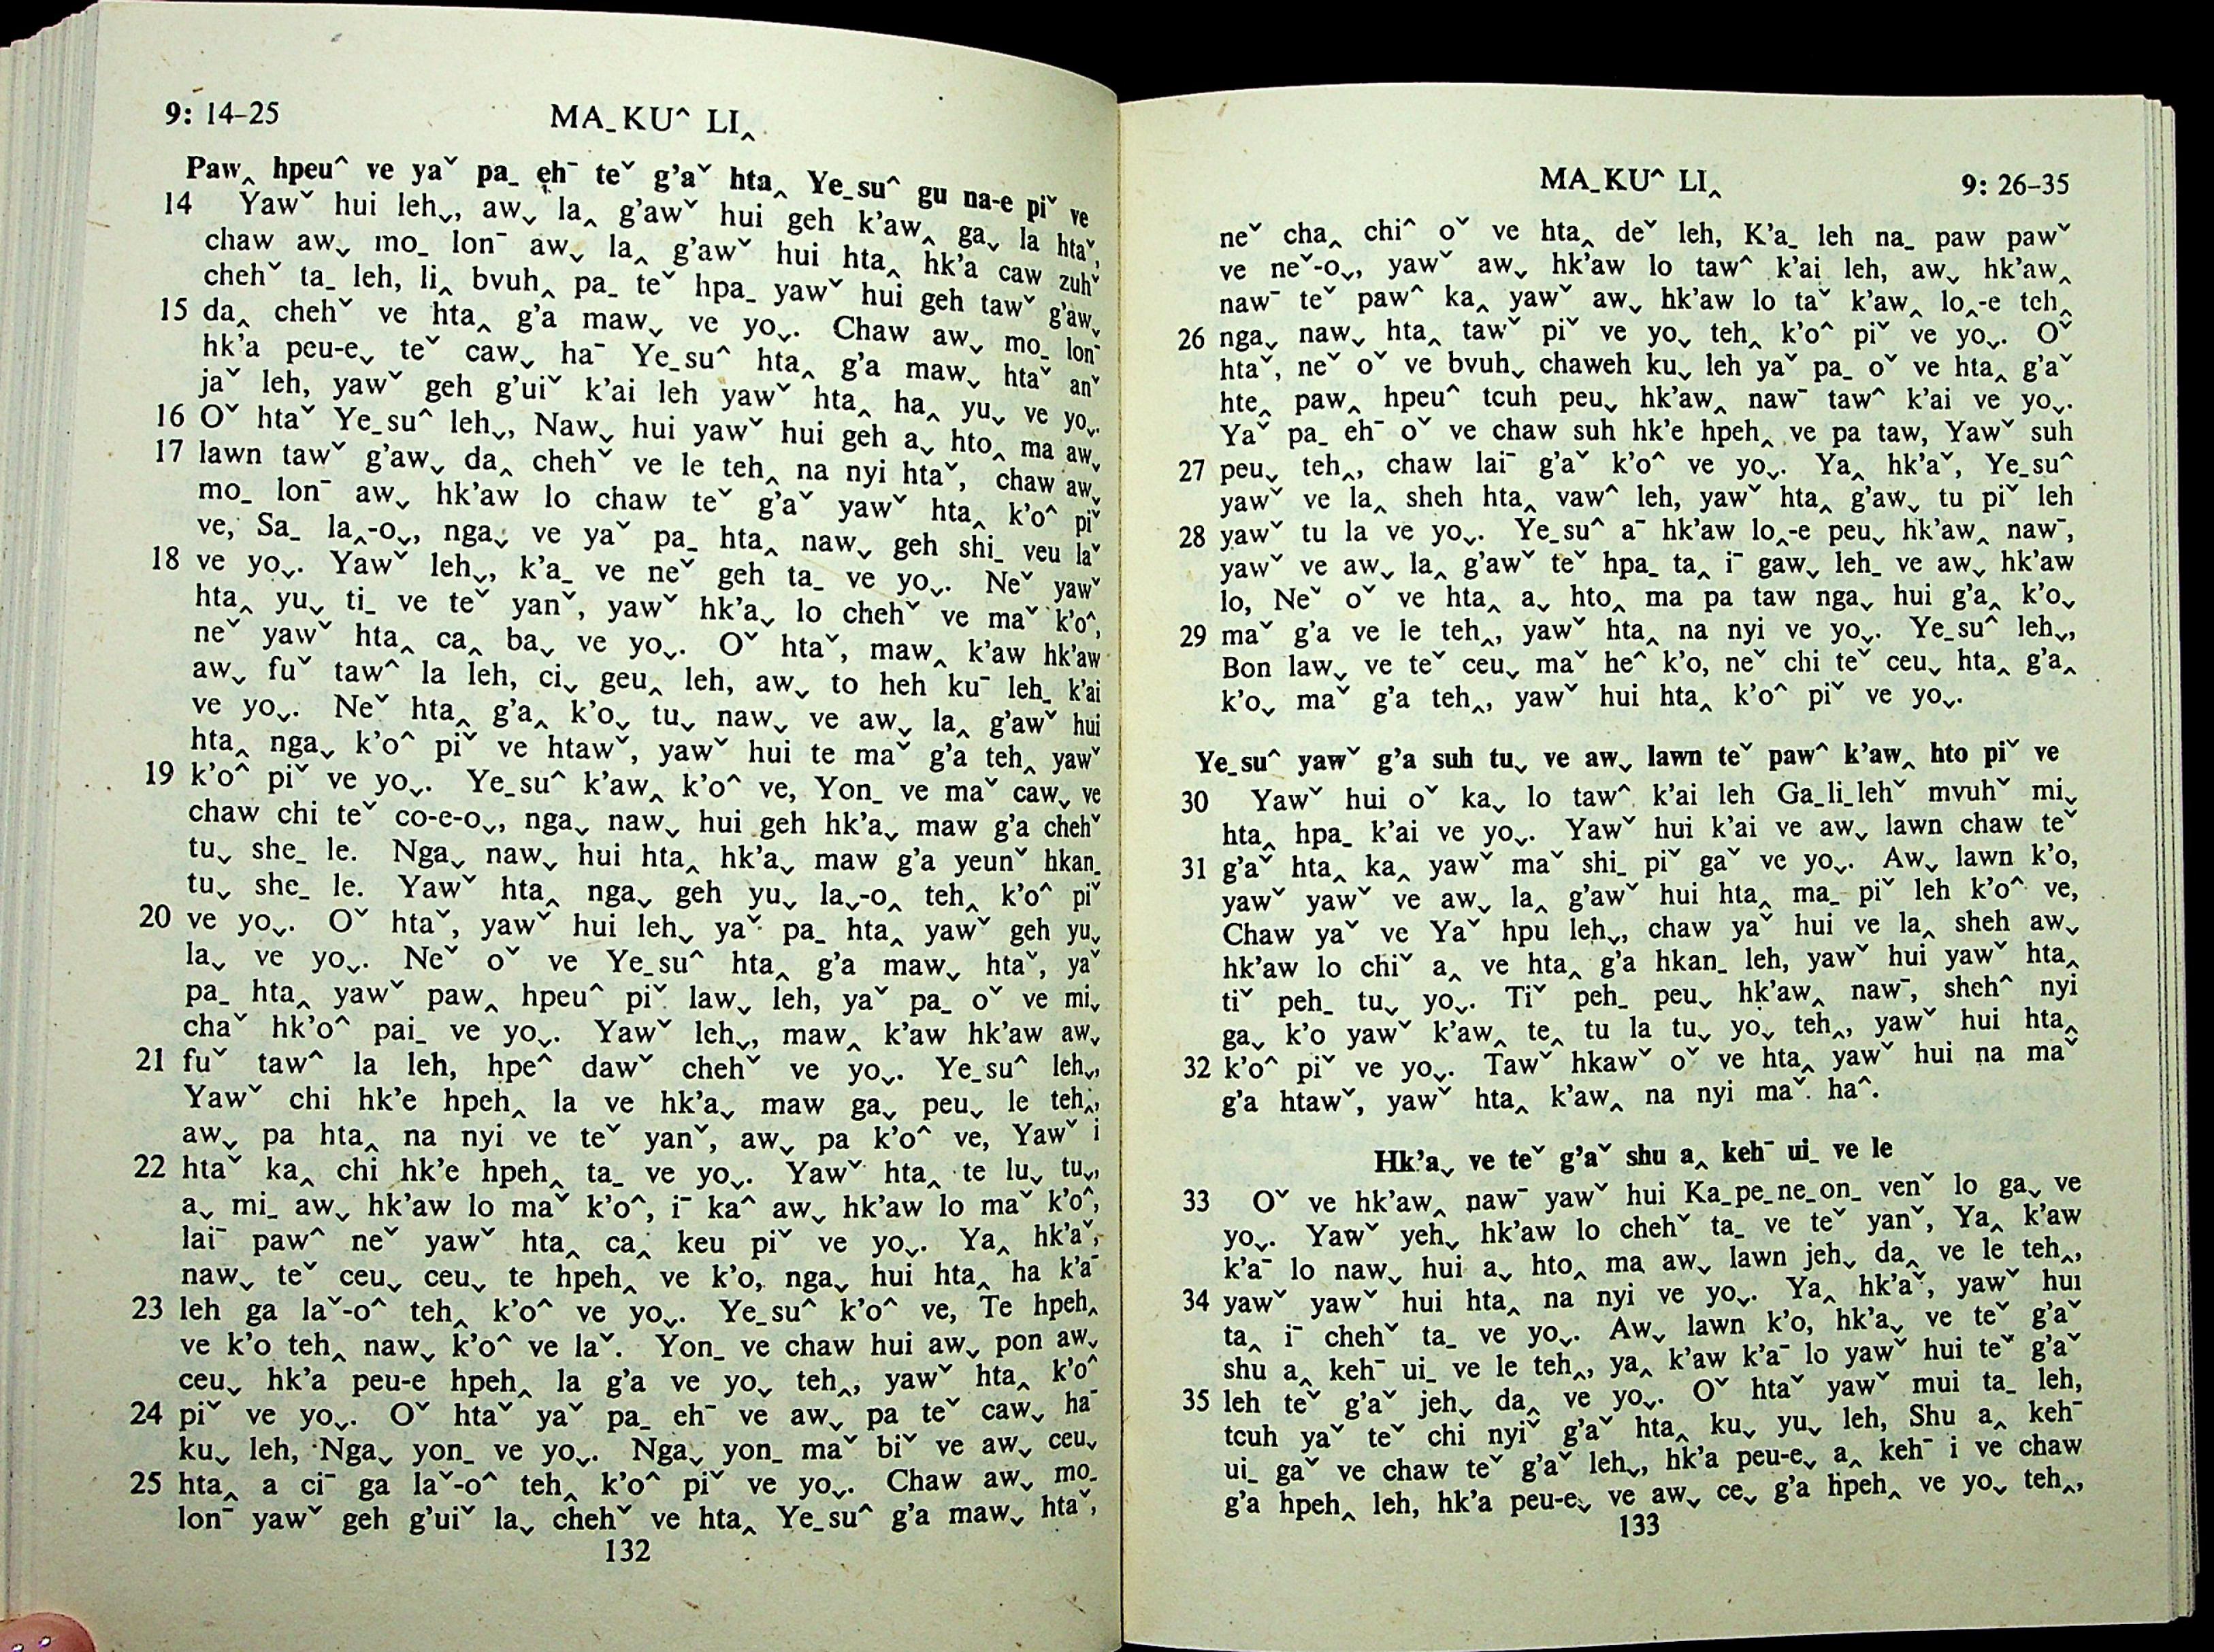 9: 14–25 MA_KU^ LI‸
Paw‸ hpeu^ ve yaˇ pa_ eh¯ teˇ g’aˇ hta‸ Ye_su^ gu na-e piˇ ve
14 Yawˇ hui leh⌄, aw⌄ la‸ g’awˇ hui geh k’aw‸ ga⌄ la htaˇ,
chaw aw⌄ mo_ lon¯ aw⌄ la‸ g’awˇ hui hta‸ hk’a caw zuhˇ
chehˇ ta_ leh, li‸ bvuh‸ pa_ teˇ hpa_ yawˇ hui geh tawˇ g’aw⌄
15 da‸ chehˇ ve hta‸ g’a maw⌄ ve yo⌄. Chaw aw⌄ mo_ lon¯
hk’a peu-e⌄ teˇ caw⌄ ha¯ Ye_su^ hta‸ g’a maw⌄ htaˇ anˇ
jaˇ leh, yawˇ geh g’uiˇ k’ai leh yawˇ hta‸ ha‸ yu⌄ ve yo⌄.
16 Oˇ htaˇ Ye_su^ leh⌄, Naw⌄ hui yawˇ hui geh a⌄ hto‸ ma aw⌄
17 lawn tawˇ g’aw⌄ da‸ chehˇ ve le teh‸ na nyi htaˇ, chaw aw⌄
mo_ lon¯ aw⌄ hk’aw lo chaw teˇ g’aˇ yawˇ hta‸ k’o^ piˇ
ve, Sa_ la‸-o⌄, nga⌄ ve yaˇ pa_ hta‸ naw⌄ geh shi_ veu laˇ
18 ve yo⌄. Yawˇ leh⌄, k’a_ ve neˇ geh ta_ ve yo⌄. Neˇ yawˇ
hta‸ yu⌄ ti_ ve teˇ yanˇ, yawˇ hk’a⌄ lo chehˇ ve maˇ k’o^,
neˇ yawˇ hta‸ ca‸ ba⌄ ve yo⌄. Oˇ htaˇ, maw‸ k’aw hk’aw
aw⌄ fuˇ taw^ la leh, ci⌄ geu‸ leh, aw⌄ to heh ku¯ leh_ k’ai
ve yo⌄. Neˇ hta‸ g’a‸ k’o⌄ tu⌄ naw⌄ ve aw⌄ la‸ g’awˇ hui
hta‸ nga⌄ k’o^ piˇ ve htawˇ, yawˇ hui te maˇ g’a teh‸ yawˇ
19 k’o^ piˇ ve yo⌄. Ye_su^ k’aw‸ k’o^ ve, Yon_ ve maˇ caw⌄ ve
chaw chi teˇ co-e-o⌄, nga⌄ naw⌄ hui geh hk’a⌄ maw g’a chehˇ
tu⌄ she_ le. Nga⌄ naw⌄ hui hta‸ hk’a⌄ maw g’a yeunˇ hkan_
tu⌄ she_ le. Yawˇ hta‸ nga⌄ geh yu⌄ la⌄-o‸ teh‸ k’o^ piˇ
20 ve yo⌄. Oˇ htaˇ, yawˇ hui leh⌄ yaˇ pa_ hta‸ yawˇ geh yu⌄
la⌄ ve yo⌄. Neˇ oˇ ve Ye_su^ hta‸ g’a maw⌄ htaˇ, yaˇ
pa_ hta‸ yawˇ paw‸ hpeu^ piˇ law⌄ leh, yaˇ pa_ oˇ ve mi⌄
chaˇ hk’o^ pai_ ve yo⌄. Yawˇ leh⌄, maw‸ k’aw hk’aw aw⌄
21 fuˇ taw^ la leh, hpe^ dawˇ chehˇ ve yo⌄. Ye_su^ leh⌄,
Yawˇ chi hk’e hpeh‸ la ve hk’a⌄ maw ga⌄ peu⌄ le teh‸,
aw⌄ pa hta‸ na nyi ve teˇ yanˇ, aw⌄ pa k’o^ ve, Yawˇ i
22 htaˇ ka‸ chi hk’e hpeh‸ ta_ ve yo⌄. Yawˇ hta‸ te lu⌄ tu⌄,
a⌄ mi_ aw⌄ hk’aw lo maˇ k’o^, i¯ ka^ aw⌄ hk’aw lo maˇ k’o^,
lai¯ paw^ neˇ yawˇ hta‸ ca‸ keu piˇ ve yo⌄. Ya‸ hk’aˇ,
naw⌄ teˇ ceu⌄ ceu⌄ te hpeh‸ ve k’o, nga⌄ hui hta‸ ha k’a¯
23 leh ga laˇ-o^ teh‸ k’o^ ve yo⌄. Ye_su^ k’o^ ve, Te hpeh‸
ve k’o teh‸ naw⌄ k’o^ ve laˇ. Yon_ ve chaw hui aw⌄ pon aw⌄
ceu⌄ hk’a peu-e hpeh‸ la g’a ve yo⌄ teh‸, yawˇ hta‸ k’o^
24 piˇ ve yo⌄. Oˇ htaˇ yaˇ pa_ eh¯ ve aw⌄ pa teˇ caw⌄ ha¯
ku⌄ leh, Nga⌄ yon_ ve yo⌄. Nga⌄ yon_ maˇ biˇ ve aw⌄ ceu⌄
25 hta‸ a ci¯ ga laˇ-o^ teh‸ k’o^ piˇ ve yo⌄. Chaw aw⌄ mo_
lon¯ yawˇ geh g’uiˇ la⌄ chehˇ ve hta‸ Ye_su^ g’a maw⌄ htaˇ,
132
MA_KU^ LI‸ 9: 26–35
neˇ cha‸ chi^ oˇ ve hta‸ deˇ leh, K’a_ leh na_ paw pawˇ
ve neˇ-o⌄, yawˇ aw⌄ hk’aw lo taw^ k’ai leh, aw⌄ hk’aw‸
naw¯ teˇ paw^ ka‸ yawˇ aw⌄ hk’aw lo taˇ k’aw‸ lo‸-e teh‸
26 nga⌄ naw⌄ hta‸ tawˇ piˇ ve yo⌄ teh‸ k’o^ piˇ ve yo⌄. Oˇ
htaˇ, neˇ oˇ ve bvuh⌄ chaweh ku⌄ leh yaˇ pa_ oˇ ve hta‸ g’aˇ
hte‸ paw‸ hpeu^ tcuh peu⌄ hk’aw‸ naw¯ taw^ k’ai ve yo⌄.
Yaˇ pa_ eh¯ oˇ ve chaw suh hk’e hpeh‸ ve pa taw, Yawˇ suh
27 peu⌄ teh‸, chaw lai¯ g’aˇ k’o^ ve yo⌄. Ya‸ hk’aˇ, Ye_su^
yawˇ ve la‸ sheh hta‸ vaw^ leh, yawˇ hta‸ g’aw⌄ tu piˇ leh
28 yawˇ tu la ve yo⌄. Ye_su^ a¯ hk’aw lo‸-e peu⌄ hk’aw‸ naw¯,
yawˇ ve aw⌄ la‸ g’awˇ teˇ hpa_ ta‸ i¯ gaw⌄ leh_ ve aw⌄ hk’aw
lo, Neˇ oˇ ve hta‸ a⌄ hto‸ ma pa taw nga⌄ hui g’a‸ k’o⌄
29 maˇ g’a ve le teh‸, yawˇ hta‸ na nyi ve yo⌄. Ye_su^ leh⌄,
Bon law⌄ ve teˇ ceu⌄ maˇ he^ k’o, neˇ chi teˇ ceu⌄ hta‸ g’a‸
k’o⌄ maˇ g’a teh‸, yawˇ hui hta‸ k’o^ piˇ ve yo⌄.
Ye_su^ yawˇ g’a suh tu⌄ ve aw⌄ lawn teˇ paw^ k’aw‸ hto piˇ ve
30 Yawˇ hui oˇ ka⌄ lo taw^ k’ai leh Ga_li_lehˇ mvuhˇ mi⌄
hta‸ hpa_ k’ai ve yo⌄. Yawˇ hui k’ai ve aw⌄ lawn chaw teˇ
31 g’aˇ hta‸ ka‸ yawˇ maˇ shi_ piˇ gaˇ ve yo⌄. Aw⌄ lawn k’o,
yawˇ yawˇ ve aw⌄ la‸ g’awˇ hui hta‸ ma_ piˇ leh k’o^ ve,
Chaw yaˇ ve Yaˇ hpu leh⌄, chaw yaˇ hui ve la‸ sheh aw⌄
hk’aw lo chiˇ a‸ ve hta‸ g’a hkan_ leh, yawˇ hui yawˇ hta‸
tiˇ peh_ tu⌄ yo⌄. Tiˇ peh_ peu⌄ hk’aw‸ naw¯, sheh^ nyi
ga⌄ k’o yawˇ k’aw‸ te‸ tu la tu⌄ yo⌄ teh‸, yawˇ hui hta‸
32 k’o^ piˇ ve yo⌄. Tawˇ hkawˇ oˇ ve hta‸ yawˇ hui na maˇ
g’a htawˇ, yawˇ hta‸ k’aw‸ na nyi maˇ ha^.
Hk’a⌄ ve teˇ g’aˇ shu a‸ keh¯ ui_ ve le
33 Oˇ ve hk’aw‸ naw¯ yawˇ hui Ka_pe_ne_on_ venˇ lo ga⌄ ve
yo⌄. Yawˇ yeh⌄ hk’aw lo chehˇ ta_ ve teˇ yanˇ, Ya‸ k’aw
k’a¯ lo naw⌄ hui a⌄ hto‸ ma aw⌄ lawn jeh⌄ da‸ ve le teh‸,
34 yawˇ yawˇ hui hta‸ na nyi ve yo⌄. Ya‸ hk’aˇ, yawˇ hui
ta‸ i¯ chehˇ ta_ ve yo⌄. Aw⌄ lawn k’o, hk’a⌄ ve teˇ g’aˇ
shu a‸ keh¯ ui_ ve le teh‸, ya‸ k’aw k’a¯ lo yawˇ hui teˇ g’aˇ
35 leh teˇ g’aˇ jeh⌄ da‸ ve yo⌄. Oˇ htaˇ yawˇ mui ta_ leh,
tcuh yaˇ teˇ chi nyiˇ g’aˇ hta‸ ku⌄ yu⌄ leh, Shu a‸ keh¯
ui_ gaˇ ve chaw teˇ g’aˇ leh⌄, hk’a peu-e⌄ a‸ keh¯ i ve chaw
g’a hpeh‸ leh, hk’a peu-e⌄ ve aw⌄ ce⌄ g’a hpeh‸ ve yo⌄ teh‸,
133